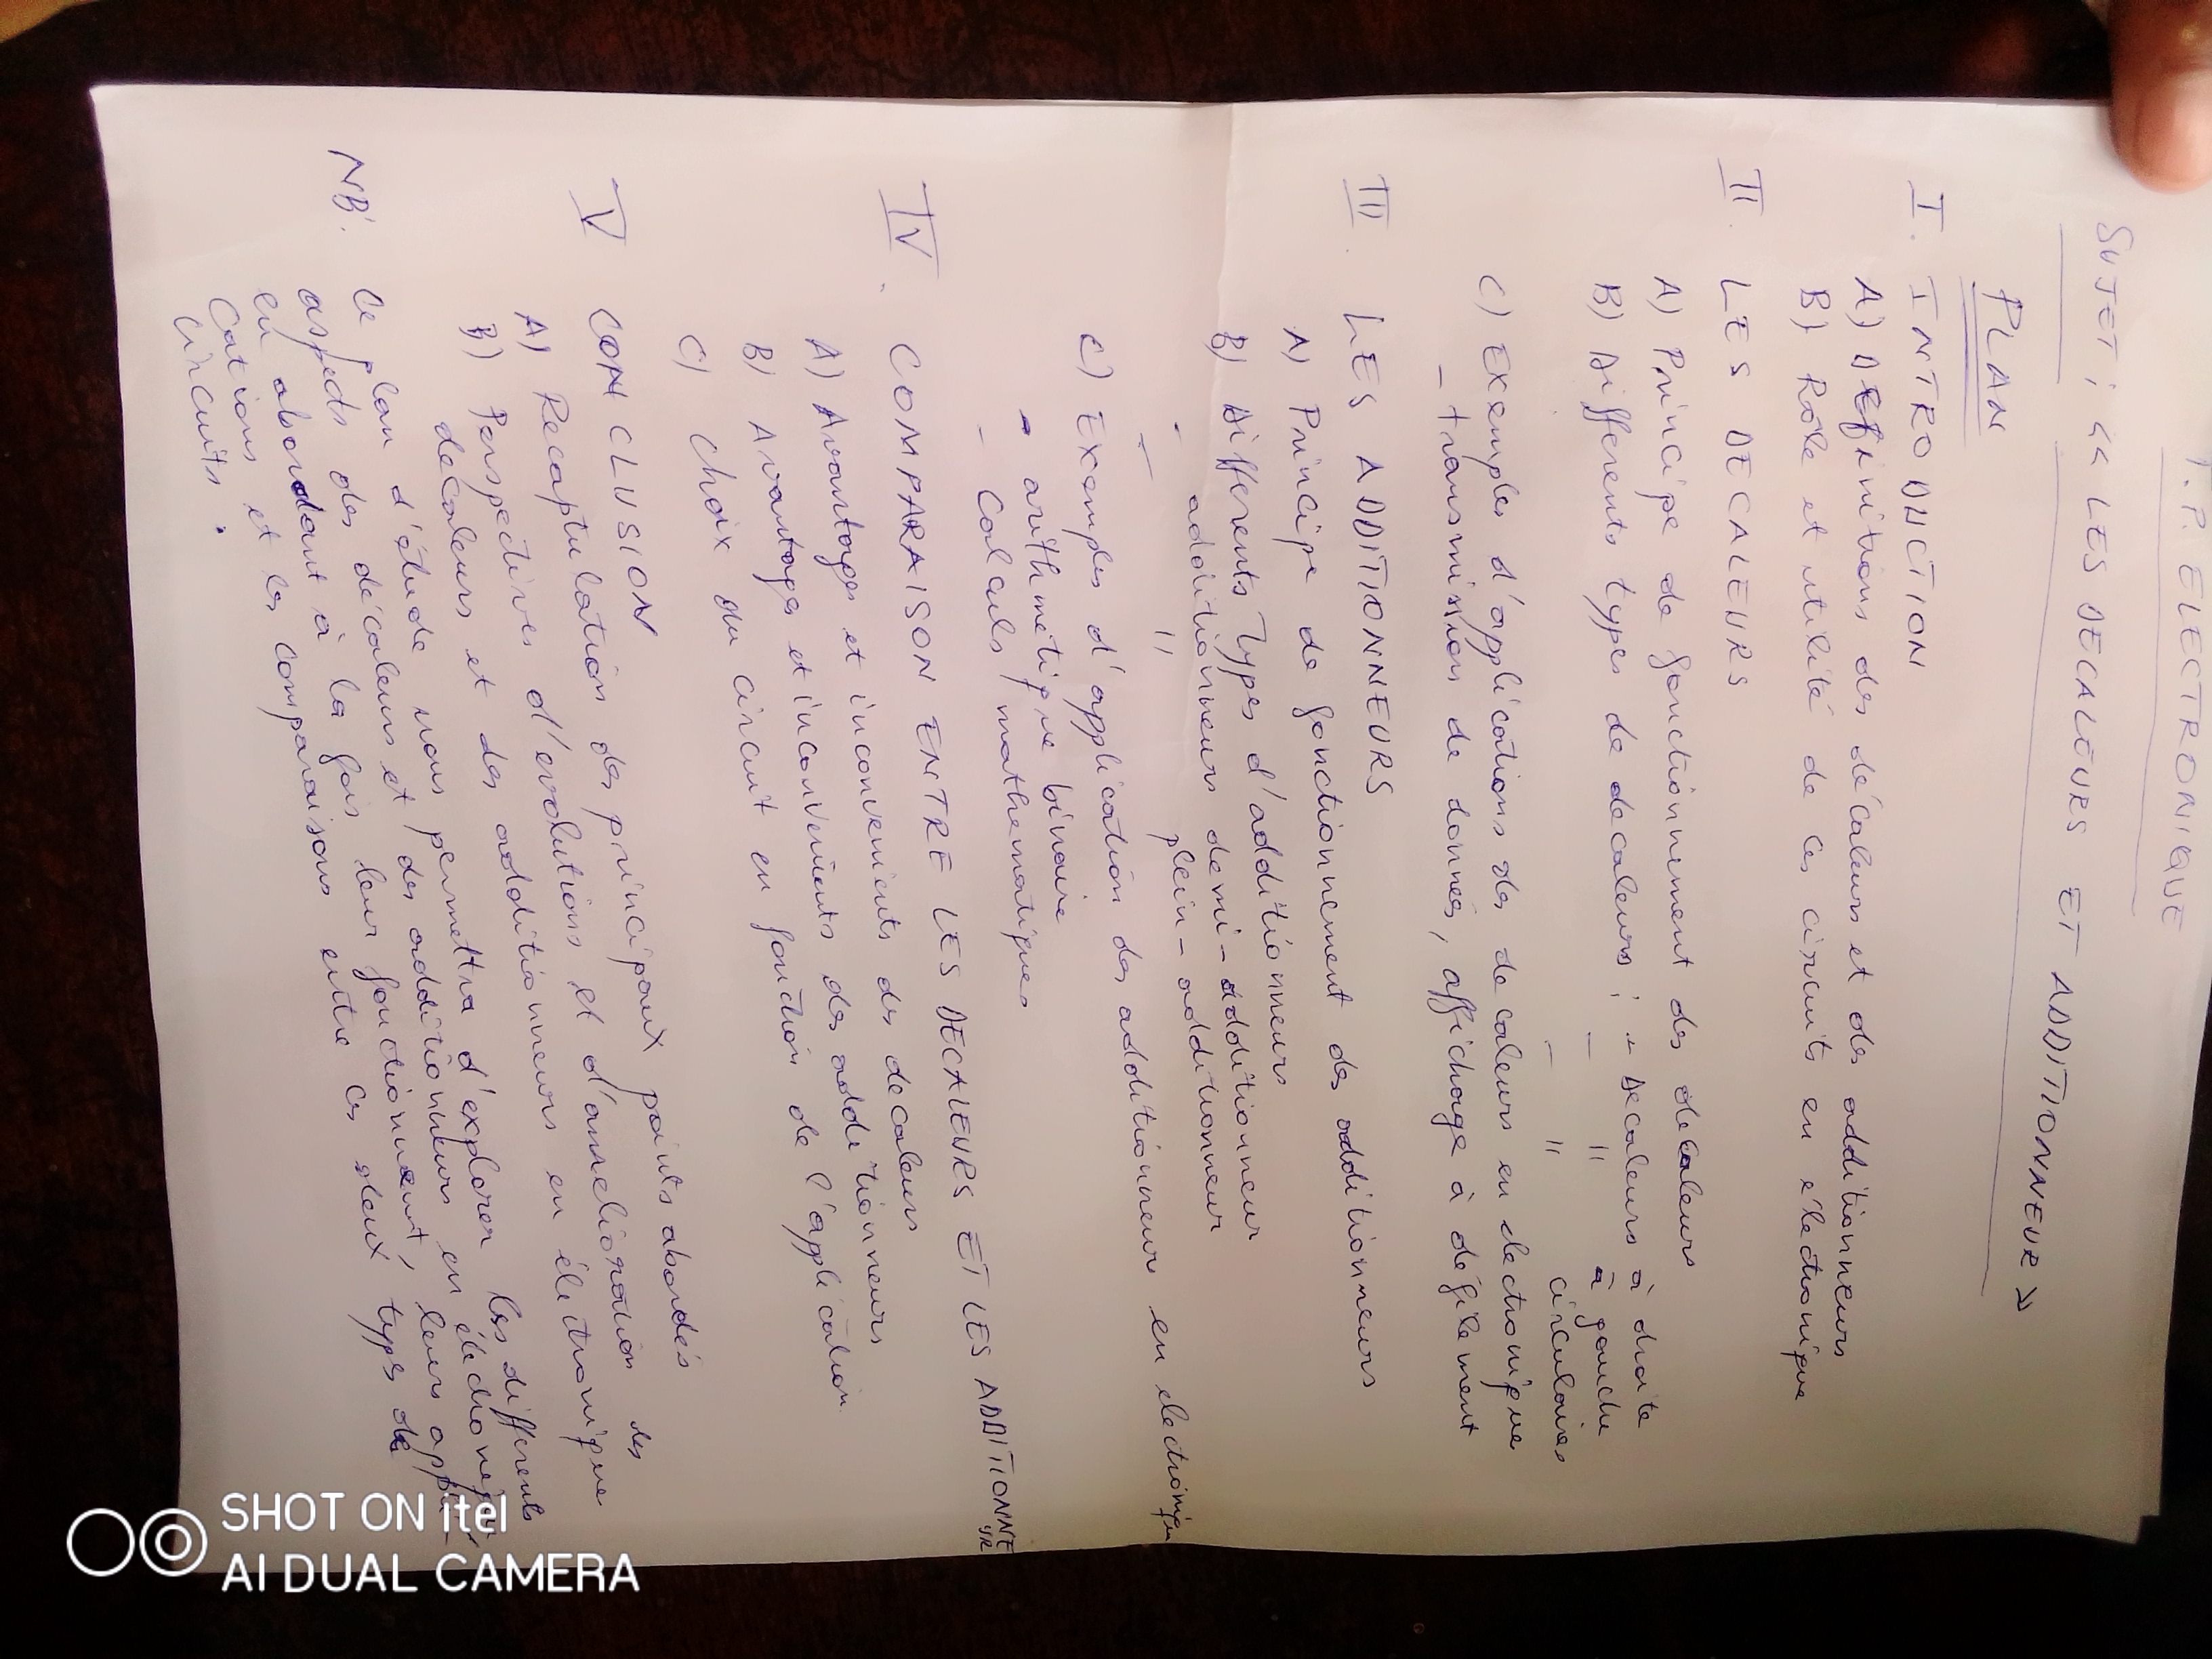 T.P. ELECTRONIQUE
SUJET ; << LES DECALEURS ET ADDITIONNEUR >>
PLAN
I. INTRODUCTION
A) DEfinitions des décaleurs et des additionneurs
B) Rôle et utilité de ces circuits en électronique
II. LES DECALEURS
A) Principe de fonctionnement des decaleurs
B) Differents types de decaleurs ; - Decaleurs à droite
- " à gauche
- " circulaires
C) Exemples d'applications des decaleurs en electronique
- transmission de données, affichage à défilement
III. LES ADDITIONNEURS
A) Principe de fonctionnement des additionneurs
B) Differents Types d'additionneurs
- additionneurs demi-additionneur
- " plein-additionneur
C) Exemples d'application des additionneur en electronique
- arithmétique binaire
- Calculs mathematiques
IV. COMPARAISON ENTRE LES DECALEURS ET LES ADDITIONNEUR
A) Avantages et inconvenients des decaleurs
B) Avantages et inconvenients des additionneurs
C) Choix du circuit en fonction de l'application
V CONCLUSION
A) Recaptulation des principaux points abordés
B) Perspectives d'evolutions et d'amelioration des
decaleurs et des additionneurs en électronique
NB: Ce plan d'étude nous permettra d'explorer les differents
aspects des décaleurs et des additionneurs en électronique
en abordant à la fois leur fonctionnement, leurs appli
cations et les comparaisons entre ces deux types de
circuits.
SHOT ON itel
AI DUAL CAMERA